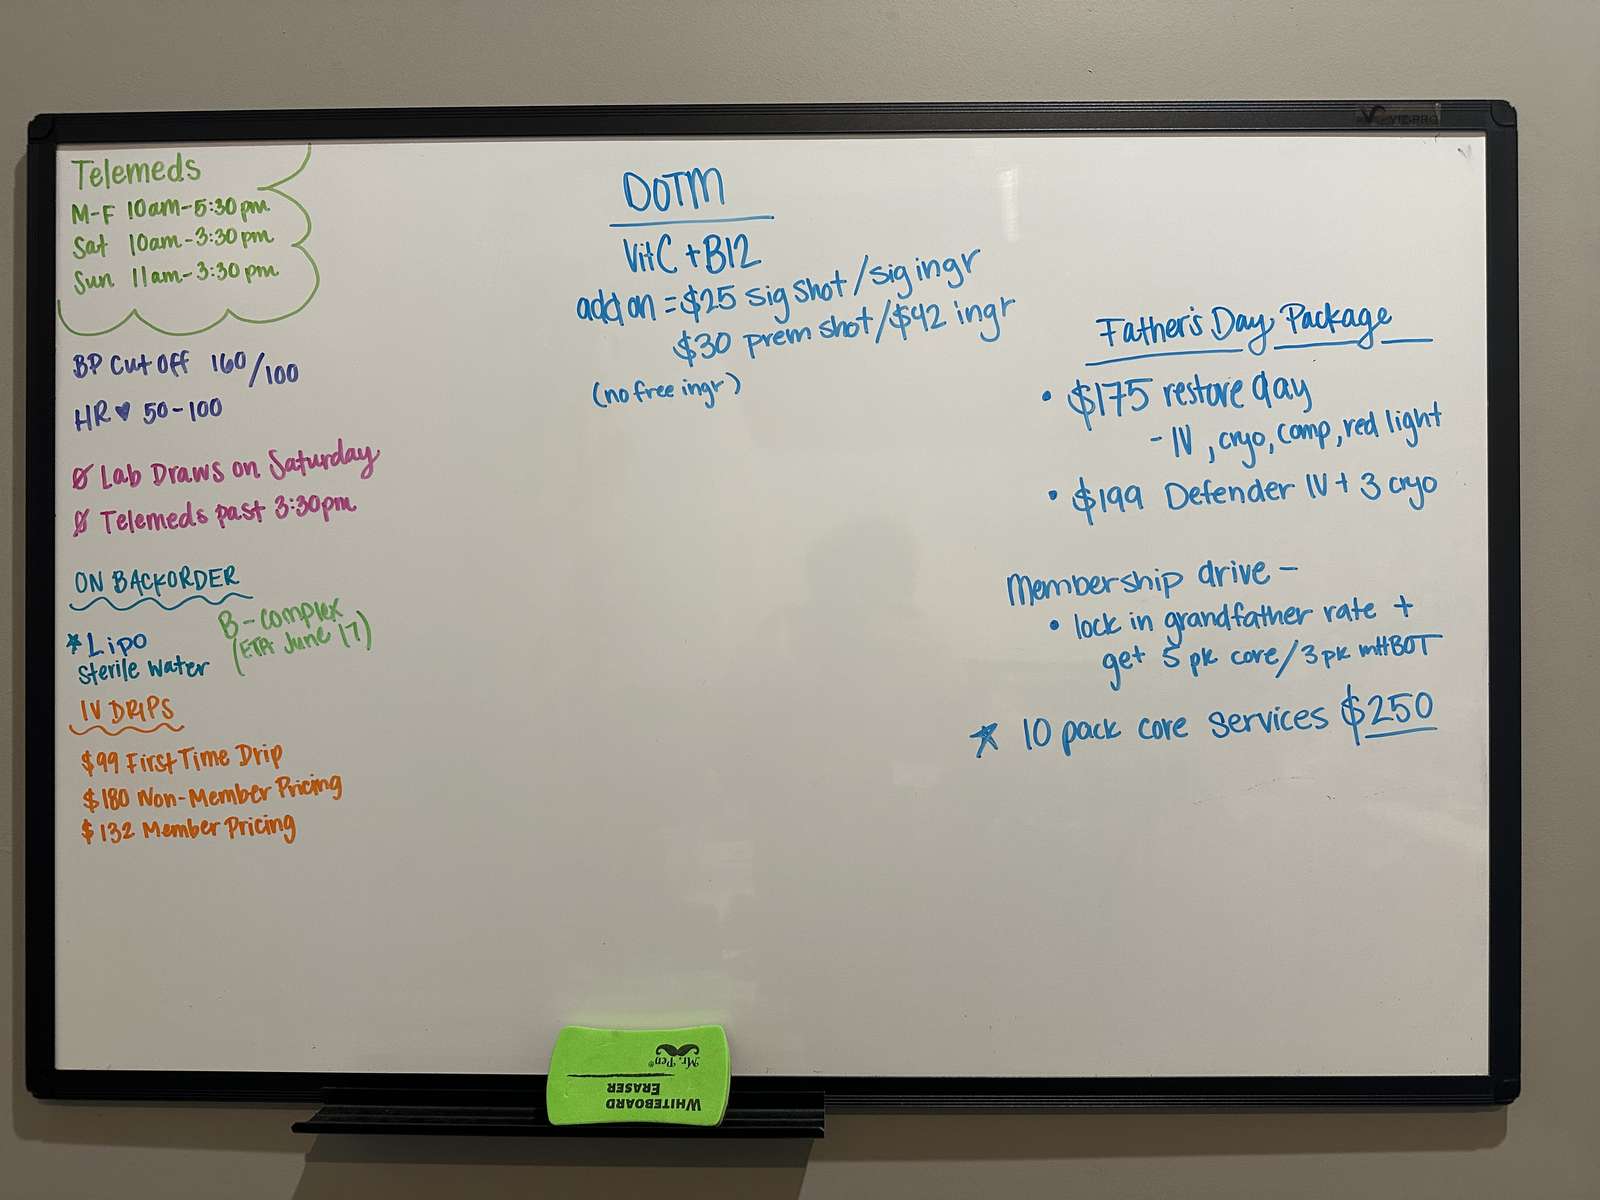 Telemeds
M-F 10am-5:30pm
Sat 10am-3:30pm
Sun 11am-3:30pm
BP Cut Off 160/100
HR ♥ 50-100
Ø Lab Draws on Saturday
Ø Telemeds past 3:30pm
ON BACKORDER
★ Lipo
Sterile Water
B-complex
(ETA: June 17)
IV DRIPS
$99 First Time Drip
$180 Non-Member Pricing
$132 Member Pricing
DOTM
Vit C + B12
add on = $25 sig shot/sig ingr
$30 prem shot/$42 ingr
(no free ingr)
Father's Day Package
• $175 restore day
- IV, cryo, comp, red light
• $199 Defender IV + 3 cryo
Membership drive -
• lock in grandfather rate +
get 5 pk core/3 pk mHBOT
★ 10 pack core services $250
Mr. Pen®
WHITEBOARD
ERASER